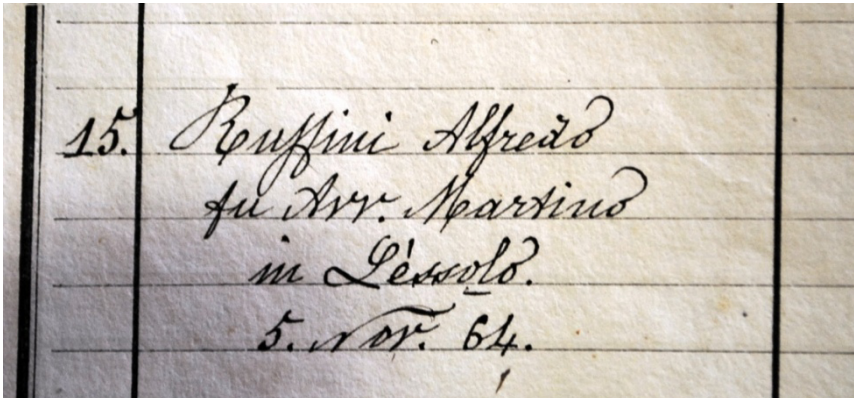 15. Ruffini Alfredo
fu Avv. Martino
in Lèssolo.
5. Nov. 64.